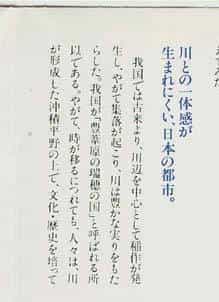 川との一体感が
生まれにくい、日本の都市。
我国では古来より、川辺を中心として稲作が発
生し、やがて集落が起こり、川は豊かな実りをもた
らした。我国が「豊葦原の瑞穂の国」と呼ばれる所
以である。やがて、時が移るにつれても、人々は、川
が形成した沖積平野の上で、文化・歴史を培って